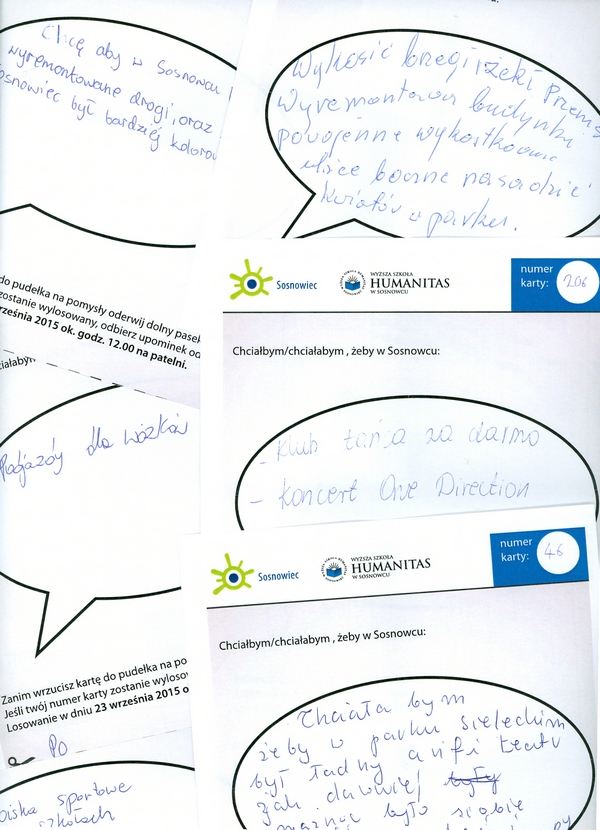 Chcę aby w Sosnowcu
wyremontowane drogi, oraz
Sosnowiec był bardziej kolorow
do pudełka na pomysły oderwij dolny pasek
zostanie wylosowany, odbierz upominek od
rześnia 2015 ok. godz. 12.00 na patelni.
ciałabym
Wykosić brzegi rzeki Przems
Wyremontować budynki
powojenne wykostkować
ulice boczne nasadzić
kwiatów w parku.
Sosnowiec
WYŻSZA SZKOŁA
HUMANITAS
W SOSNOWCU
numer
karty: 206
Chciałbym/chciałabym , żeby w Sosnowcu:
- klub tańca za darmo
- koncert One Direction
Podjazdy dla wózków
Zanim wrzucisz kartę do pudełka na po
Jeśli twój numer karty zostanie wyloso
Losowanie w dniu 23 września 2015 o
Po
oiska sportowe
szkołach
Sosnowiec
WYŻSZA SZKOŁA
HUMANITAS
W SOSNOWCU
numer
karty: 46
Chciałbym/chciałabym , żeby w Sosnowcu:
Chciała bym
żeby w parku sieleckim
był ładny amfi teatr
jak dawniej były
można było siąść